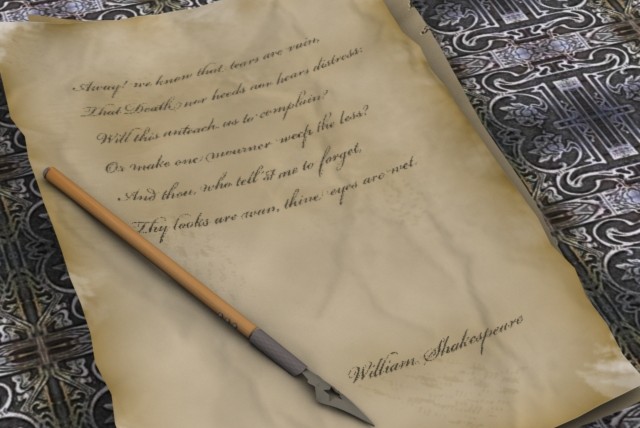 Away! we know that tears are vain,
That Death nor heeds nor hears distress:
Will this unteach us to complain?
Or make one mourner weep the less?
And thou, who tell'st me to forget,
Thy looks are wan, thine eyes are wet.
William Shakespeare